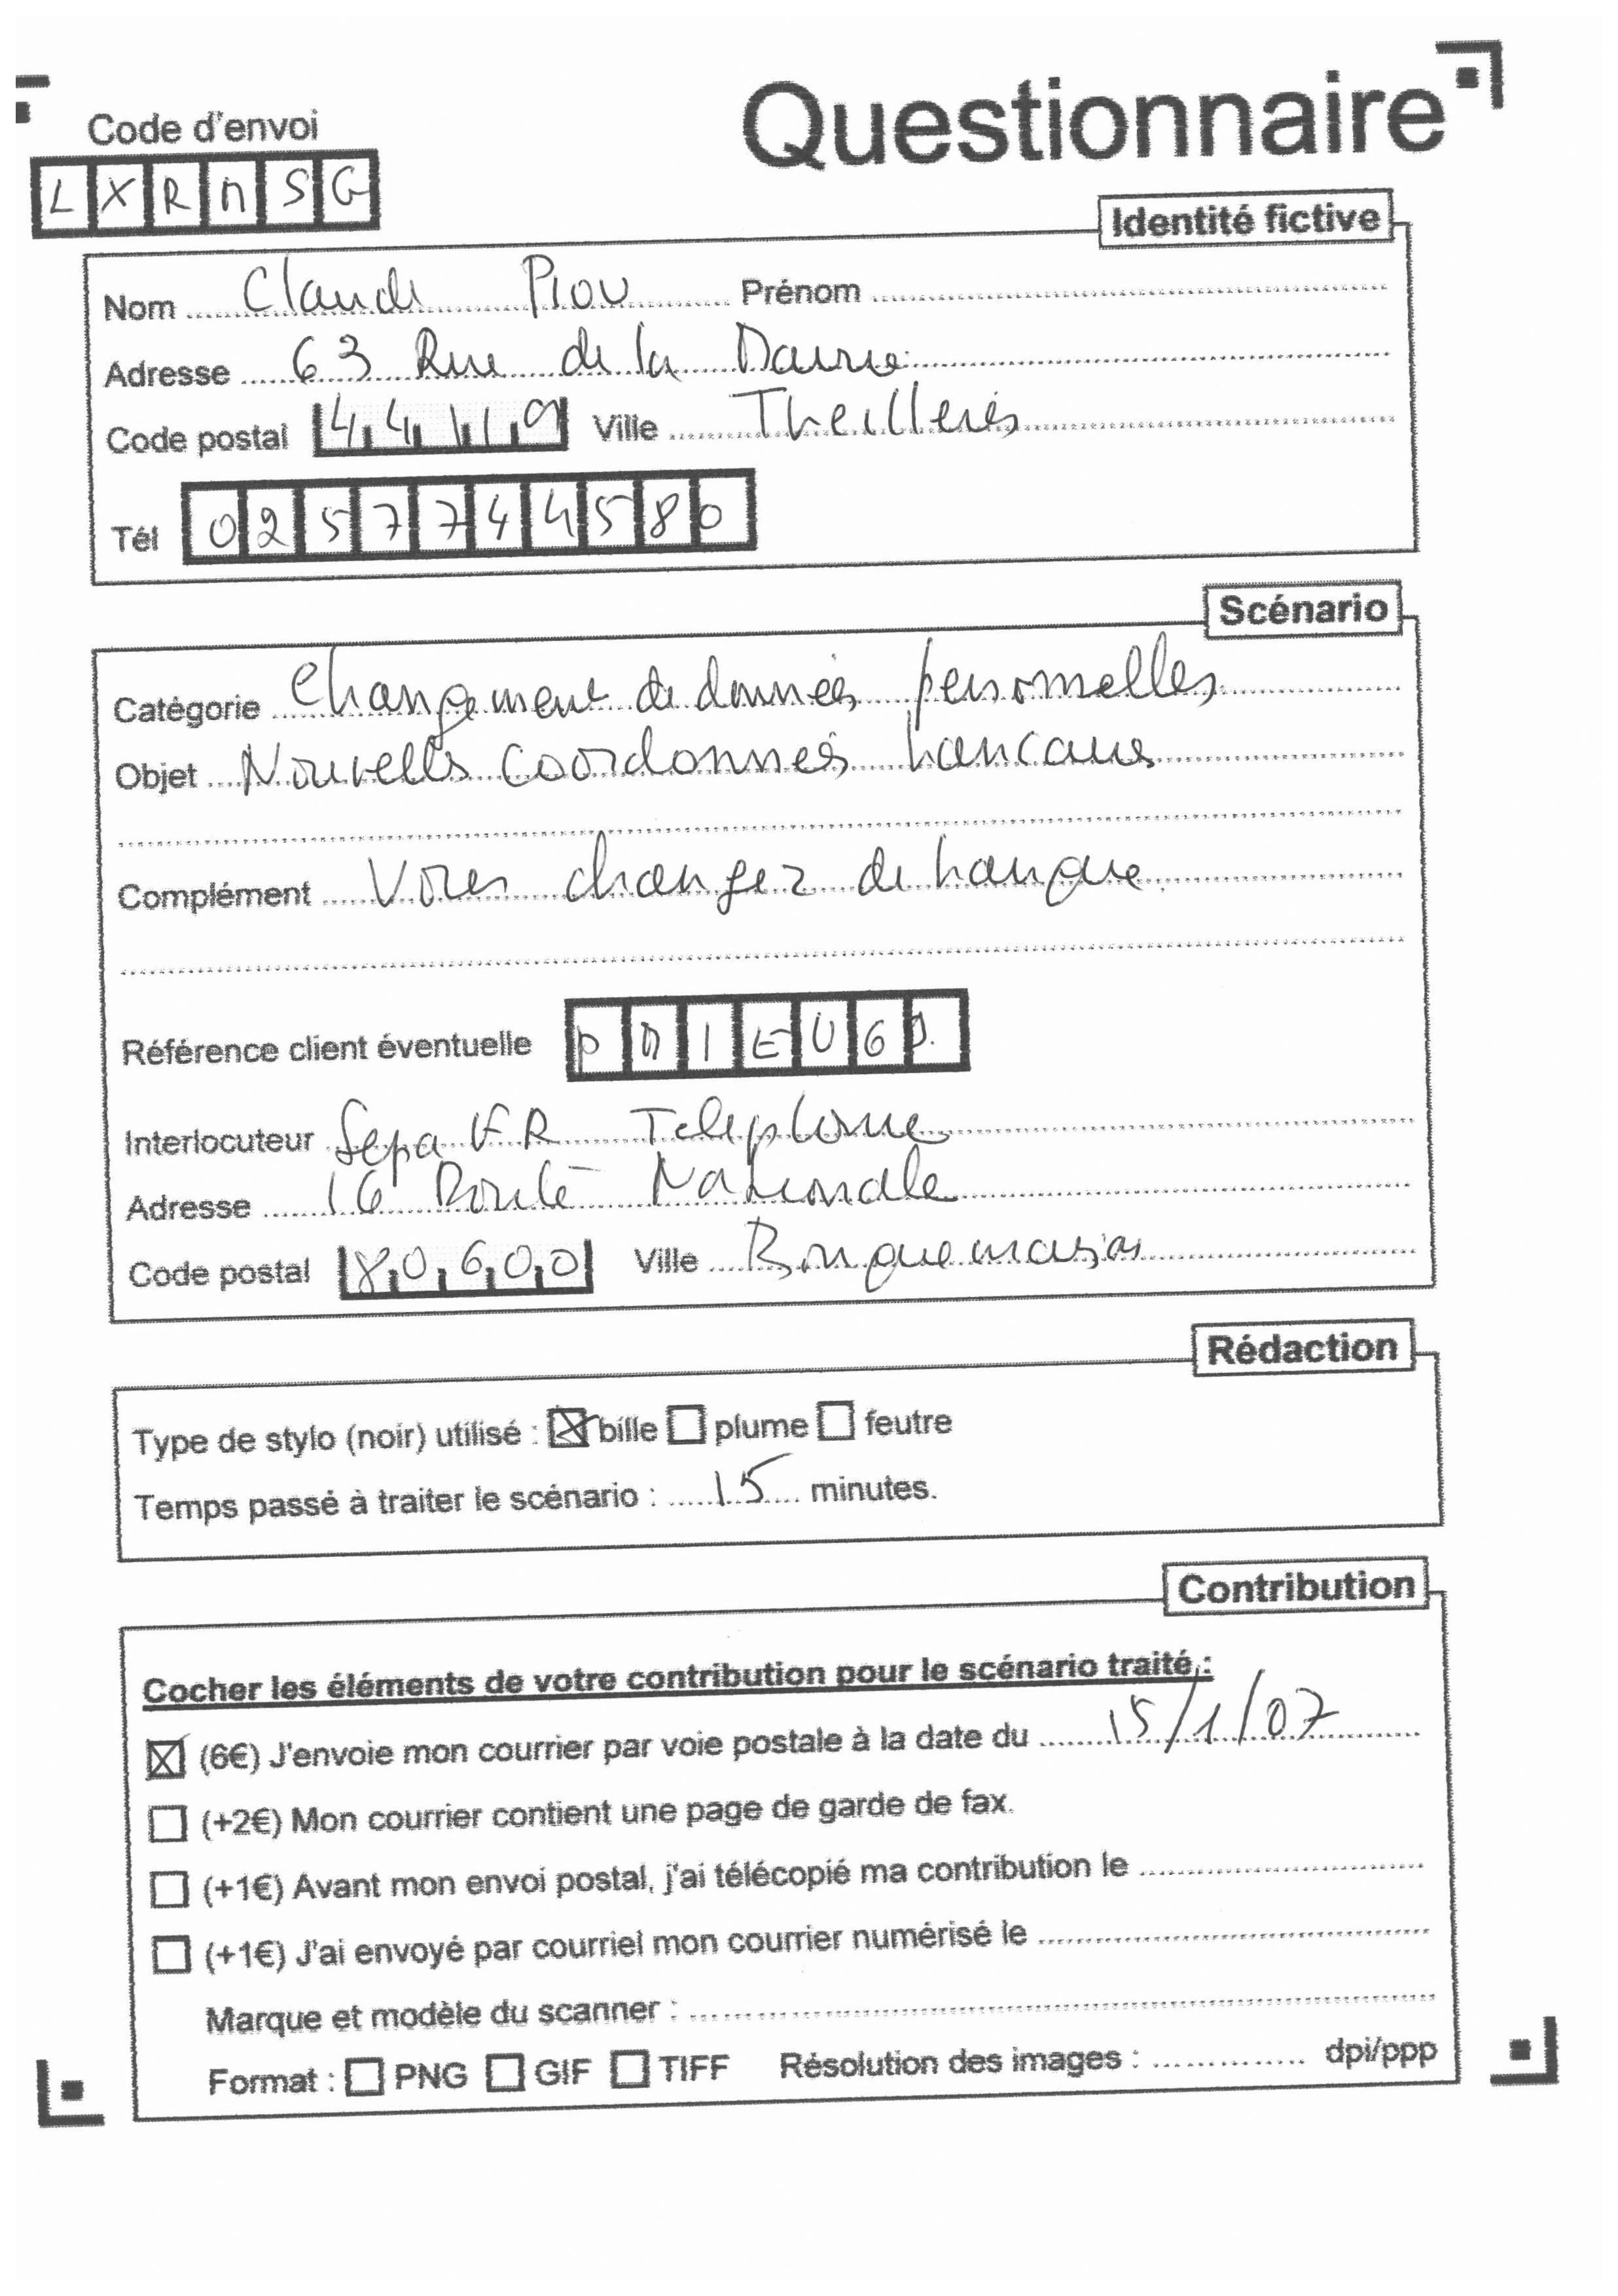 Questionnaire
Code d'envoi
LXRMSG
Identité fictive
Nom Claude Piou Prénom
Adresse 63 Rue de la Mairie
Code postal 44119 Ville Theillères
Tél 0257744580
Scénario
Catégorie Changement de données personnelles
Objet Nouvelles coordonnées bancaires
Complément Vous changez de banque
Référence client éventuelle
Interlocuteur Sepa FR Telephone
Adresse 16 Route Nationale
Code postal 80600 Ville
Rédaction
Type de stylo (noir) utilisé : ☒ bille ☐ plume ☐ feutre
Temps passé à traiter le scénario : 15 minutes.
Contribution
Cocher les éléments de votre contribution pour le scénario traité :
☒ (6€) J'envoie mon courrier par voie postale à la date du 15/1/07
☐ (+2€) Mon courrier contient une page de garde de fax.
☐ (+1€) Avant mon envoi postal, j'ai télécopié ma contribution le
☐ (+1€) J'ai envoyé par courriel mon courrier numérisé le
Marque et modèle du scanner :
Format : ☐ PNG ☐ GIF ☐ TIFF Résolution des images : dpi/ppp